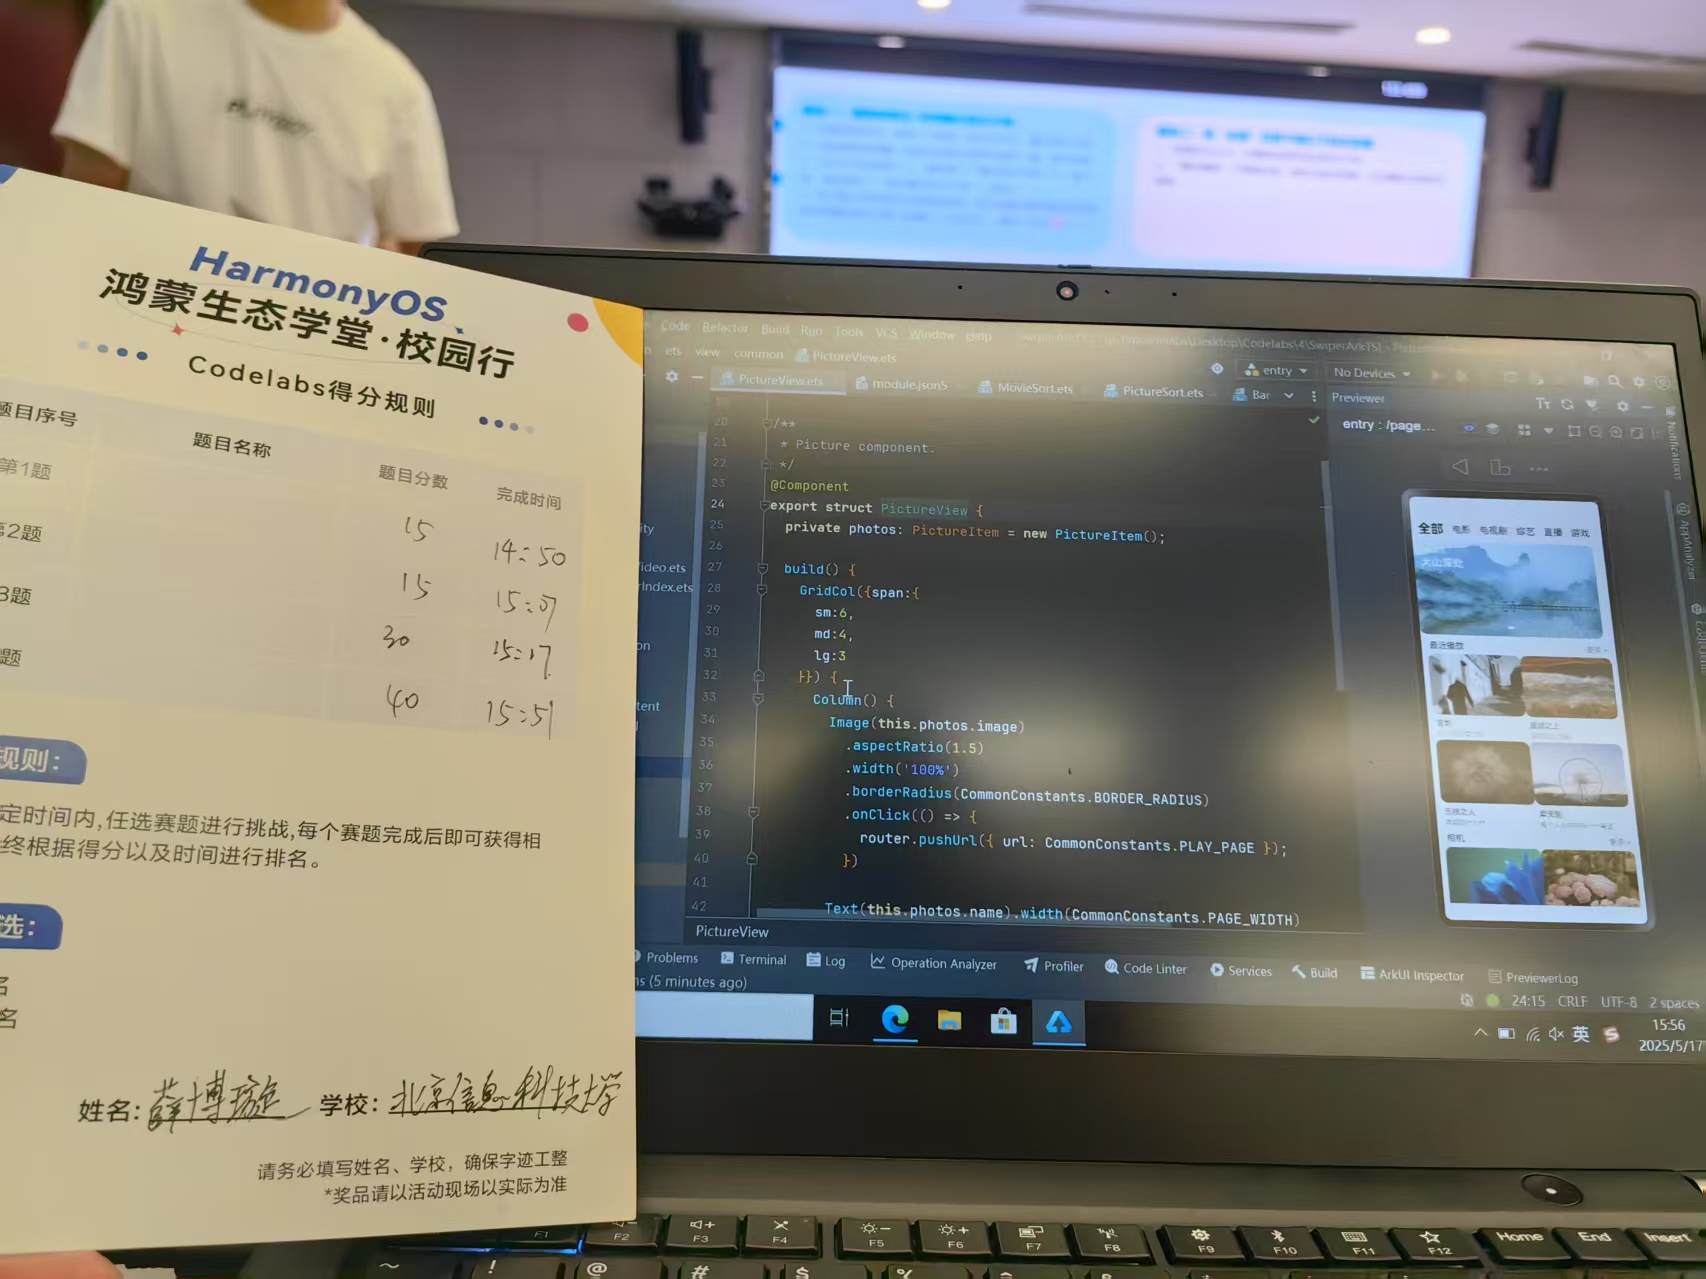 HarmonyOS
鸿蒙生态学堂·校园行
Codelabs得分规则
题目序号 题目名称 题目分数 完成时间
第1题 15 14:50
第2题 15 15:07
3题 30 15:17
题 40 15:51
规则：
定时间内,任选赛题进行挑战,每个赛题完成后即可获得相
终根据得分以及时间进行排名。
选：
名
名
姓名：薛博璇 学校：北京信息科技大学
请务必填写姓名、学校，确保字迹工整
*奖品请以活动现场以实际为准
Code Refactor Build Run Tools VCS Window Help
ets view common PictureView.ets
PictureView.ets module.json5 MovieSort.ets PictureSort.ets Bar
entry No Devices
Previewer
entry : /page...
Notifications
AppAnalyzer
20 /**
21 * Picture component.
22 */
23 @Component
24 export struct PictureView {
25 private photos: PictureItem = new PictureItem();
26
27 build() {
28 GridCol({span:{
29 sm:6,
30 md:4,
31 lg:3
32 }}) {
33 Column() {
34 Image(this.photos.image)
35 .aspectRatio(1.5)
36 .width('100%')
37 .borderRadius(CommonConstants.BORDER_RADIUS)
38 .onClick(() => {
39 router.pushUrl({ url: CommonConstants.PLAY_PAGE });
40 })
41
42 Text(this.photos.name).width(CommonConstants.PAGE_WIDTH)
PictureView
ity
ideo.ets
Index.ets
on
tent
全部 电影 电视剧 综艺 直播 游戏
大山深处
最近播放
Problems Terminal Log Operation Analyzer Profiler Code Linter Services Build ArkUI Inspector PreviewerLog
ns (5 minutes ago)
24:15 CRLF UTF-8 2 spaces
英
15:56
2025/5/17
F1 F2 F3 F4 F5 F6 F7 F8 F9 F10 F11 F12 Home End Insert
~ ! @ # $ %